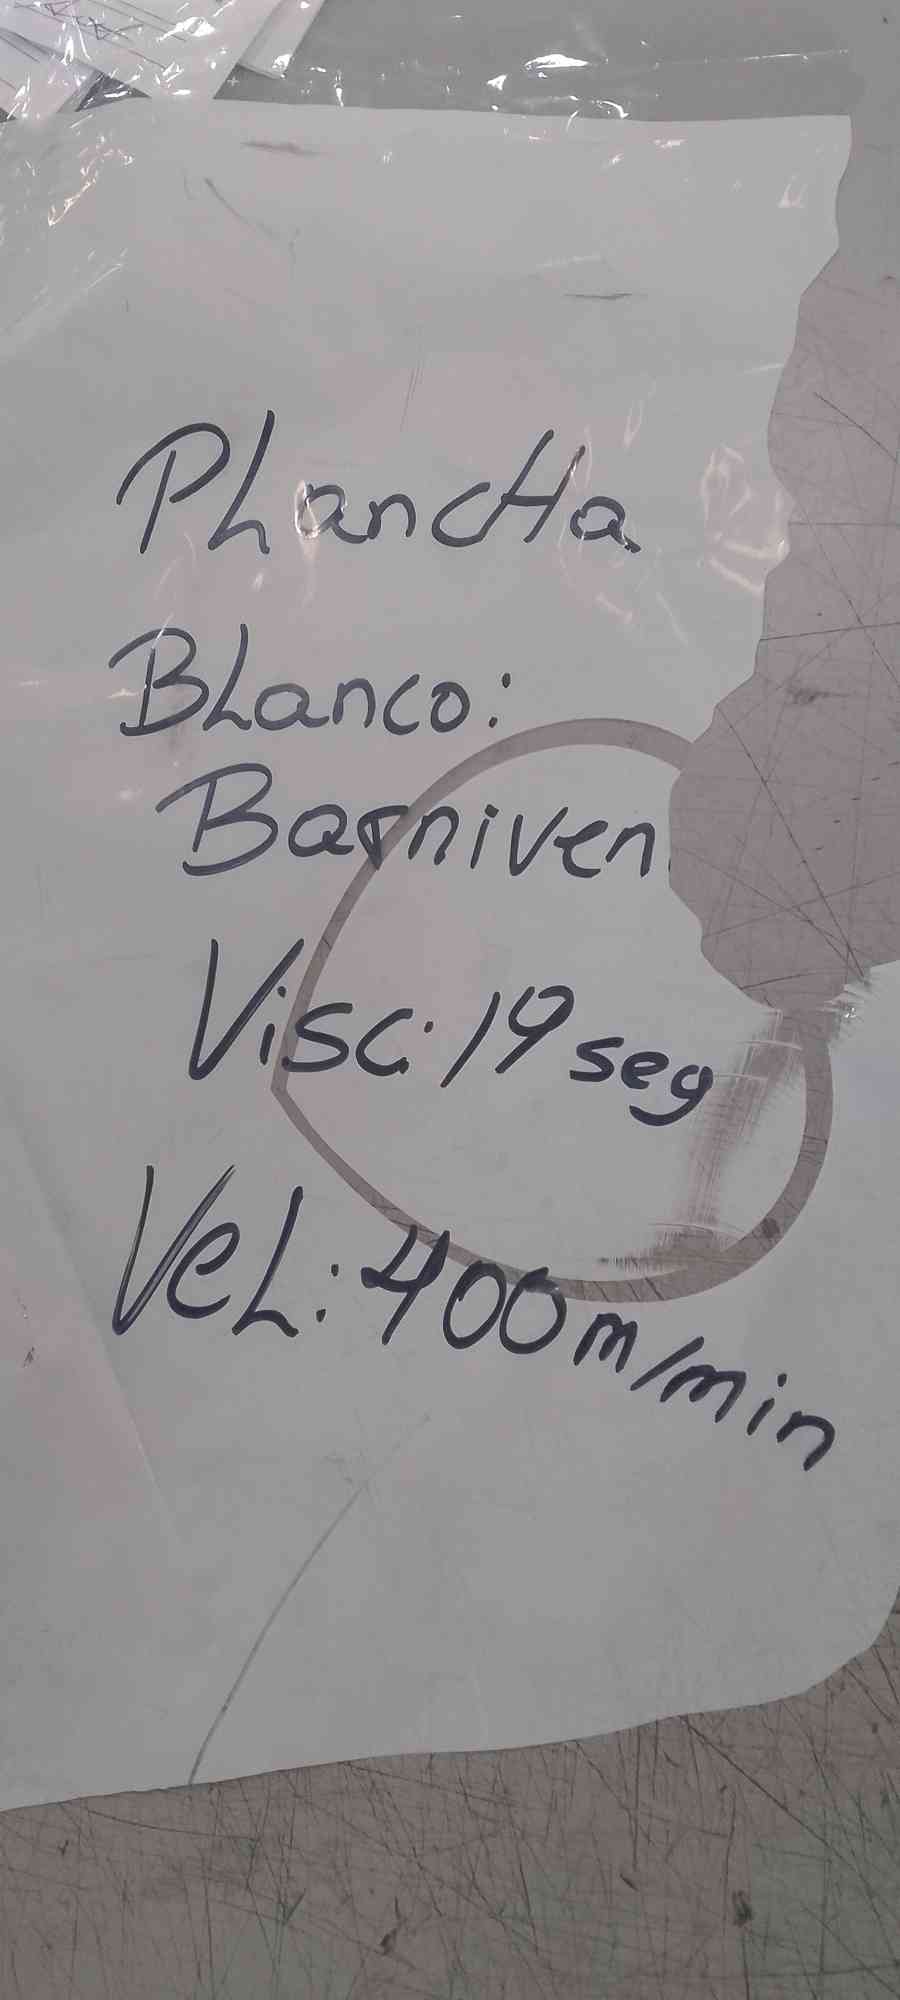 PLancHa
BLanco:
Barniven.
Visc: 19 seg
VeL: 400 m/min